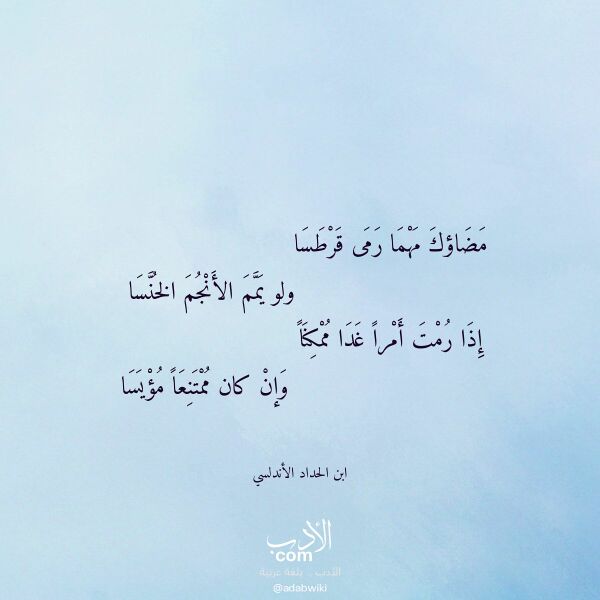 مَضَاؤكَ مَهْمَا رَمَى قَرْطَسَا
ولو يَمَّمَ الأَنْجُمَ الخُنَّسَا
إِذَا رُمْتَ أَمْراً غَدَا مُمْكِنَاً
وَإِنْ كان مُمْتَنِعَاً مُؤْيَسَا
ابن الحداد الأندلسي
الأدب
com
الأدب .. بلغة عربية
@adabwiki